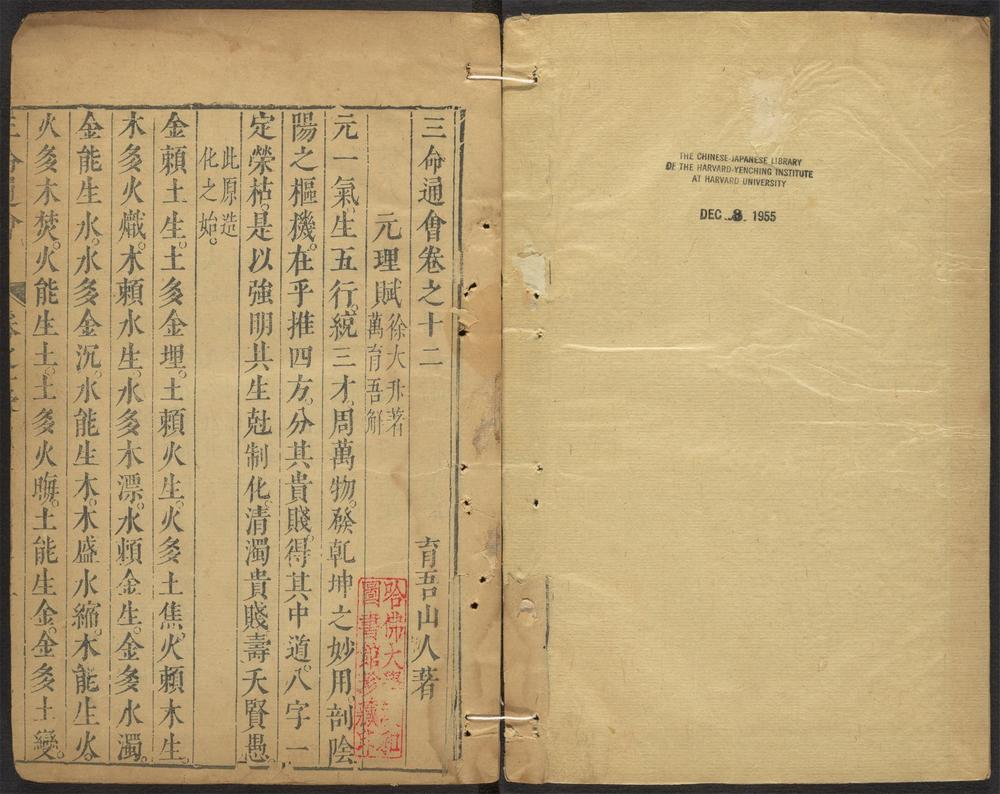 三命通會卷之十二
育吾山人著
元理賦
徐大升著
萬育吾解
元一氣。生五行。統三才。周萬物。發乾坤之妙用。剖陰
陽之樞機。在乎推四方。分其貴賤。得其中道。八字一
定榮枯。是以強明其生尅制化。清濁貴賤。壽夭賢愚。
此原造
化之始。
金賴土生。土多金埋。土賴火生。火多土焦。火賴木生。
木多火熾。木賴水生。水多木漂。水賴金生。金多水濁。
金能生水。水多金沉。水能生木。木盛水縮。木能生火。
火多木焚。火能生土。土多火晦。土能生金。金多土變。
哈佛大學
圖書館珍藏
THE CHINESE-JAPANESE LIBRARY
OF THE HARVARD-YENCHING INSTITUTE
AT HARVARD UNIVERSITY
DEC 8 1955